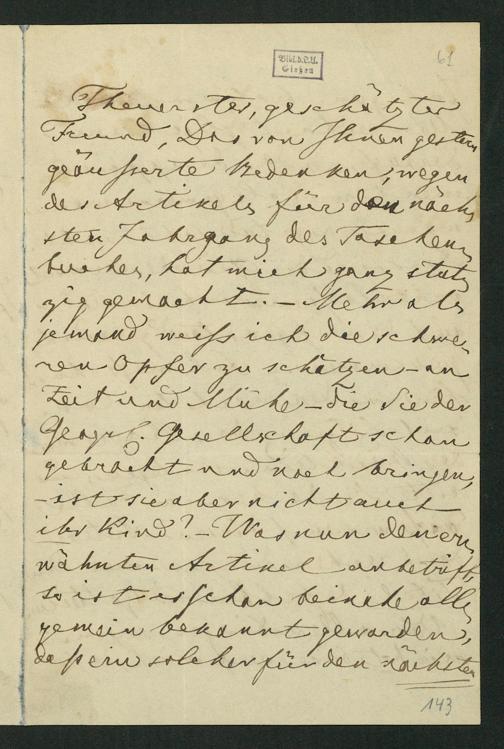 61
Bibl. d. L. U.
Gießen
Theuerster, geschätzter
Freund, Das von Ihnen gestern
geäusserte Bedenken, wegen
des Artikels für den näch,
sten Jahrgang des Taschen,
buches, hat mich ganz stut,
zig gemacht. – Mehr als
jemand weiss ich die schwe,
ren Opfer zu schätzen – an
Zeit und Mühe – die Sie der
Geogr. Gesellschaft schon
gebracht und noch bringen,
– ist sie aber nicht auch
ihr Kind? – Was nun den er,
wähnten Artikel anbetrifft,
so ist es schon beinahe all,
gemein bekannt geworden,
daß ein solcher für den nächsten
143